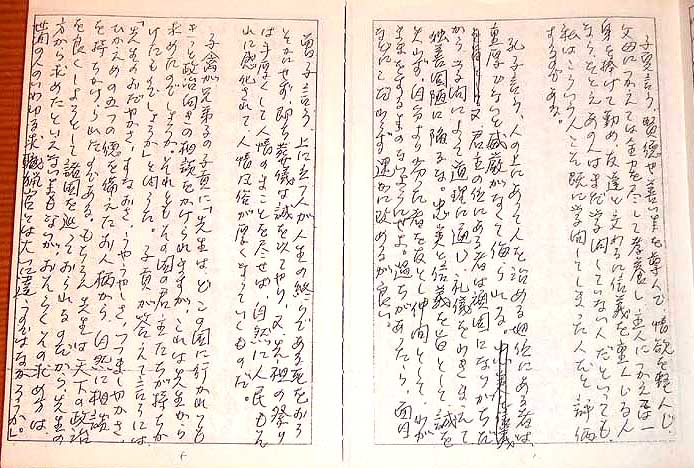 子夏言う、賢徳や善い業を尊んで情欲を軽んじ
父母につかえては全力を尽して孝養し主人につかえては一
身を捧げて勤め、友達と交わるに信義を重んじるん
ならたとえあの人はまだ学問していない人だといっても
私はこういう人こそ既に学問してしまった人だと評価
するのである。
孔子言う、人の上にあって人を治める地位にある者は、
重厚でないと威厳がなくて侮られる。
又君主の位にある者は頑固になりがちだ
から学問によって道理に通じ礼儀をわきまえて
独善固陋に陥るな。忠実と信義を旨として誠を
失わず、自分より劣った者を友とし仲間として、わが
ままをするものでないようにせよ。過ちがあったら、面目
などにこだわらず速かに改めるが良い。
曽子言う、上に立つ人が人生の終りである死をおろ
そかにせず、即ち葬儀な誠を以てやり、又先祖の祭り
は手厚くして人情のまことを尽せば、自然に人民もそ
れに感化されて、人情風俗が厚くなっていくものだ。
子禽が兄弟子の子貢に「先生は、どこの国に行かれても
きっと政治向きの相談をかけられますが、これは先生から
求めたのでしょうか。それともその国の君主たちが持ちか
けたものでしょうか」と問うた。子貢が答えて言うには、
「先生のおだやかさ、すなおさ、うやうやしさ、つつましやかさ、
ひかえめの五つの徳を備えたお人柄から、自然に相談
を持ちかけられたのである。もちろん先生は天下の政治
を良くしようとして諸国を巡っておられるのだから、先生の
方から求めたといえないまでもないが、おんみずからの求め方は、
世間の人のいわゆる求職就官とは大へん違うのではなかろうか」。